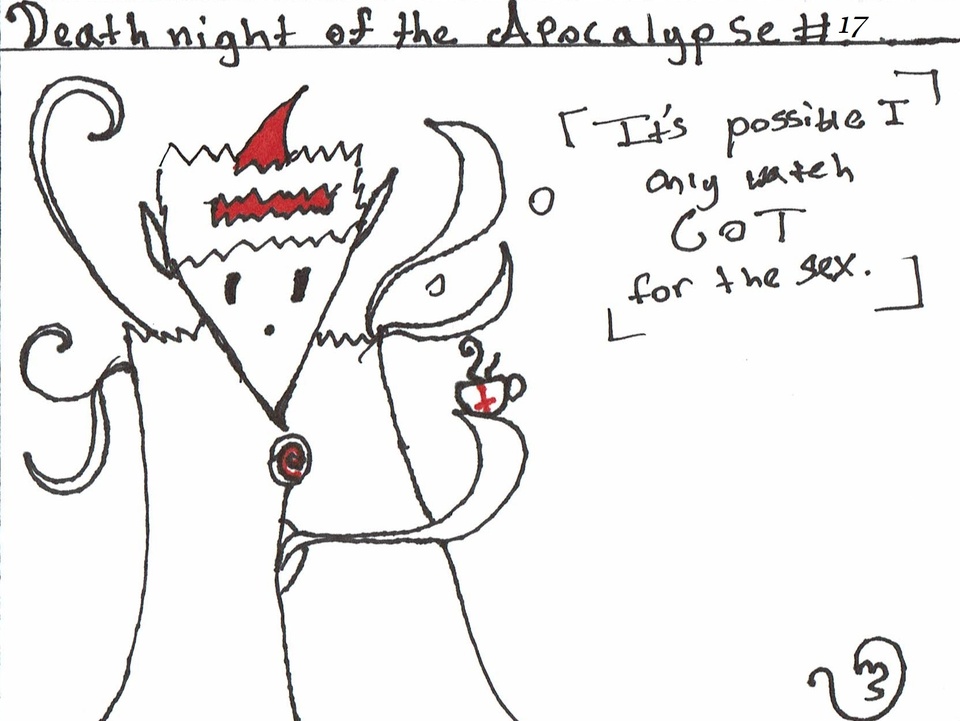 Death night of the Apocalypse #17
It's possible I
only watch
GOT
for the sex.